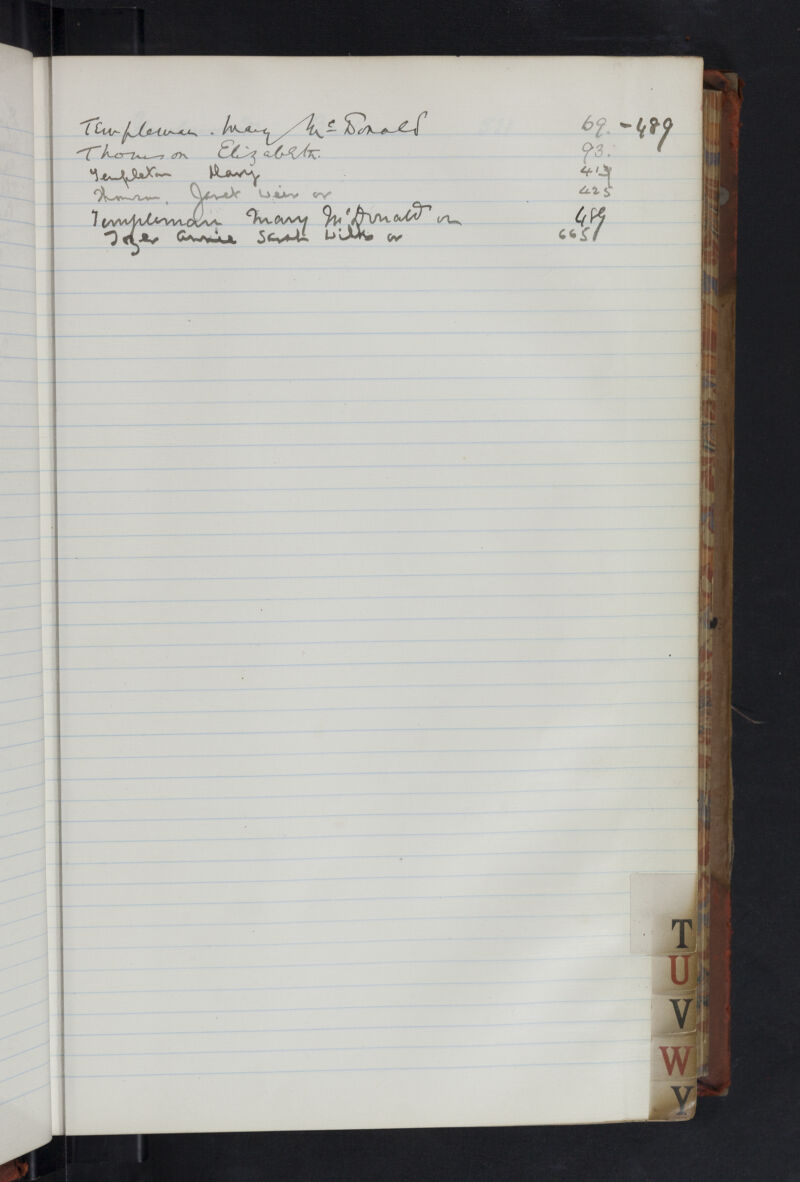 Templeman. Mary McDonald 69. - 489
Thomson Elizabeth. 93.
Templeton Mary 419
Thomson, Janet Weir or 425
Templeman Mary McDonald or 489
Tozer Annie Sarah Wilks or 665
T
U
V
W
Y